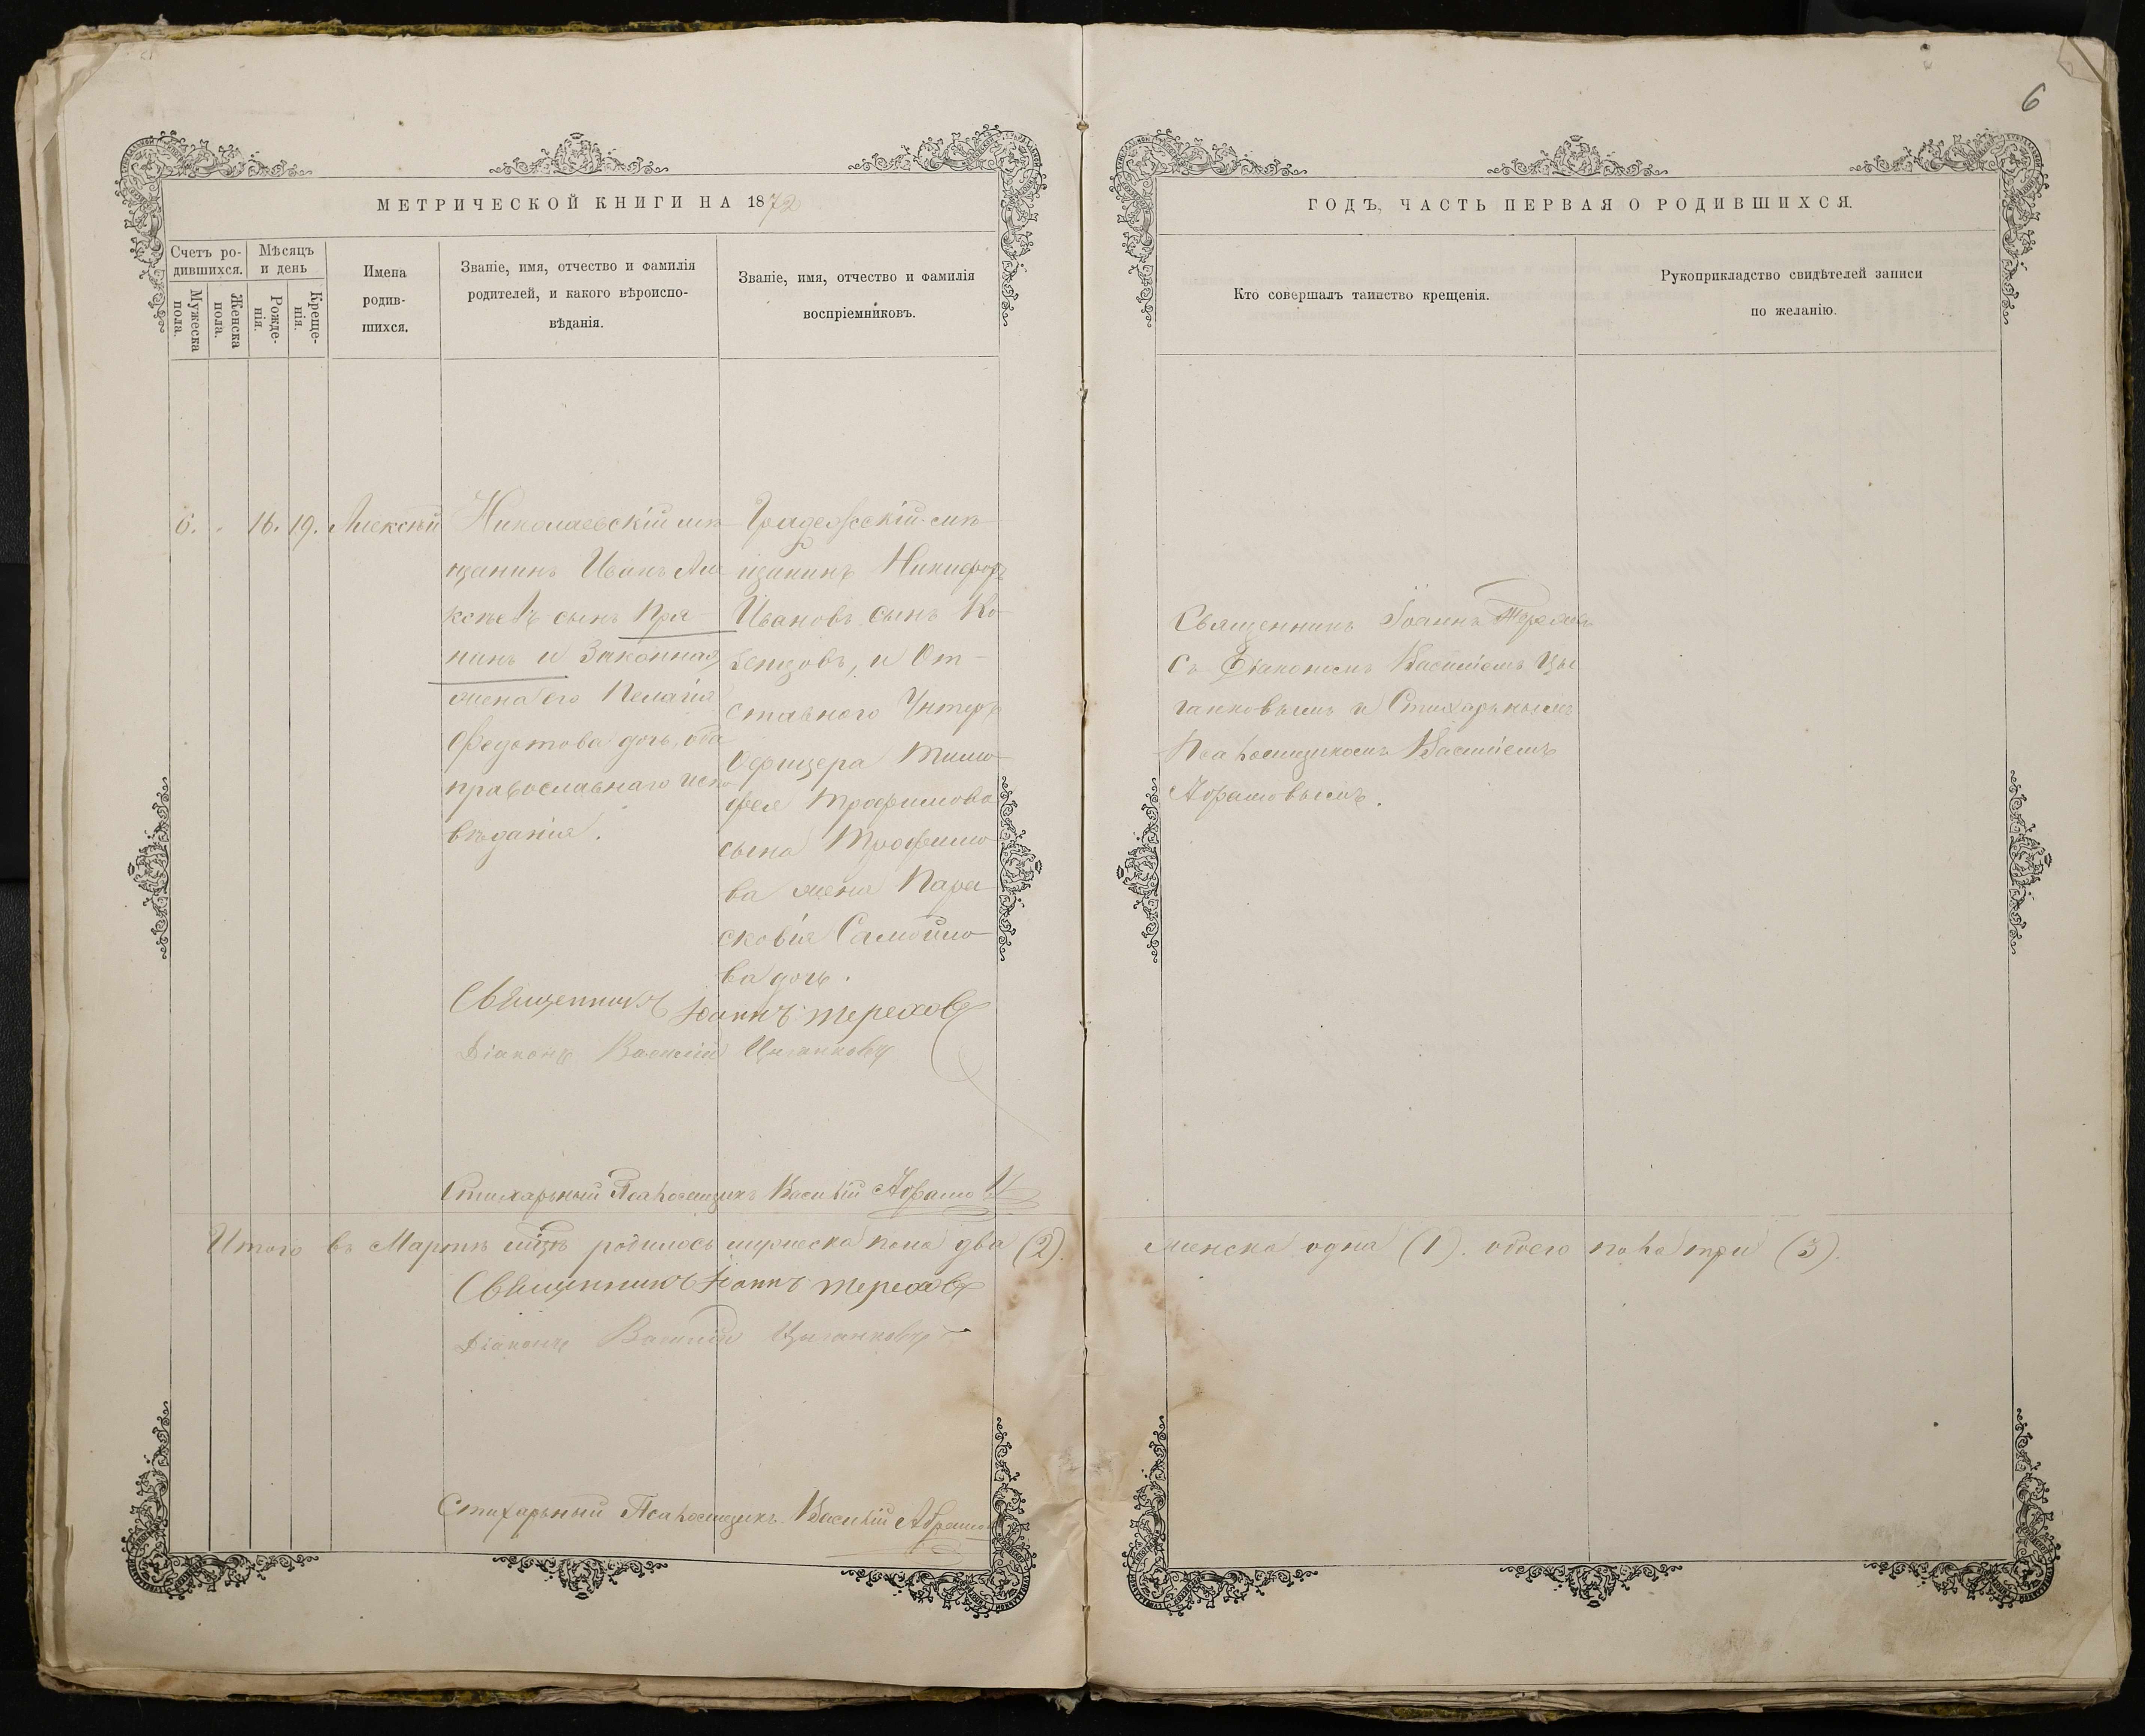 6
МЕТРИЧЕСКОЙ КНИГИ НА 1872
ГОДЪ, ЧАСТЬ ПЕРВАЯ О РОДИВШИХСЯ.
Счетъ ро-
дившихся.
Мужеска
пола.
Женска
пола.
Мѣсяцъ
и день
Рожде-
нія.
Креще-
нія.
Имена
родив-
шихся.
Званіе, имя, отчество и фамилія
родителей, и какого вѣроиспо-
вѣданія.
Званіе, имя, отчество и фамилія
воспріемниковъ.
Кто совершалъ таинство крещенія.
Рукоприкладство свидѣтелей записи
по желанію.
6.
16.
19.
Алексѣй
Николаевскій мѣ-
щанинъ Иванъ Але
ксѣевъ сынъ Пря-
нинъ и Законная
жена его Пелагія
Федотова дочь, оба
православнаго испо
вѣданія.
мѣ-
щанинъ Никифоръ
Ивановъ сынъ Ко-
бенцовъ, и От-
ставного Унтеръ
Офицера Тимо-
фея Трофимова
сына Трофимо-
ва жена Пара-
сковія Самойло-
ва дочь.
Священникъ Іоаннъ Тереховъ
съ Діакономъ Василіемъ Цы
ганковымъ и Стихарнымъ
Псаломщикомъ Василіемъ
Абрамовымъ.
Священникъ Іоаннъ Тереховъ
Діаконъ Василій Цыганковъ
Стихарный Псаломщикъ Василій Абрамовъ
Итого въ Мартѣ мцѣ родилось мужеска пола два (2). женска одна (1). обоего пола три (3).
Священникъ Іоаннъ Тереховъ
Діаконъ Василій Цыганковъ
Стихарный Псаломщикъ Василій Абрамовъ